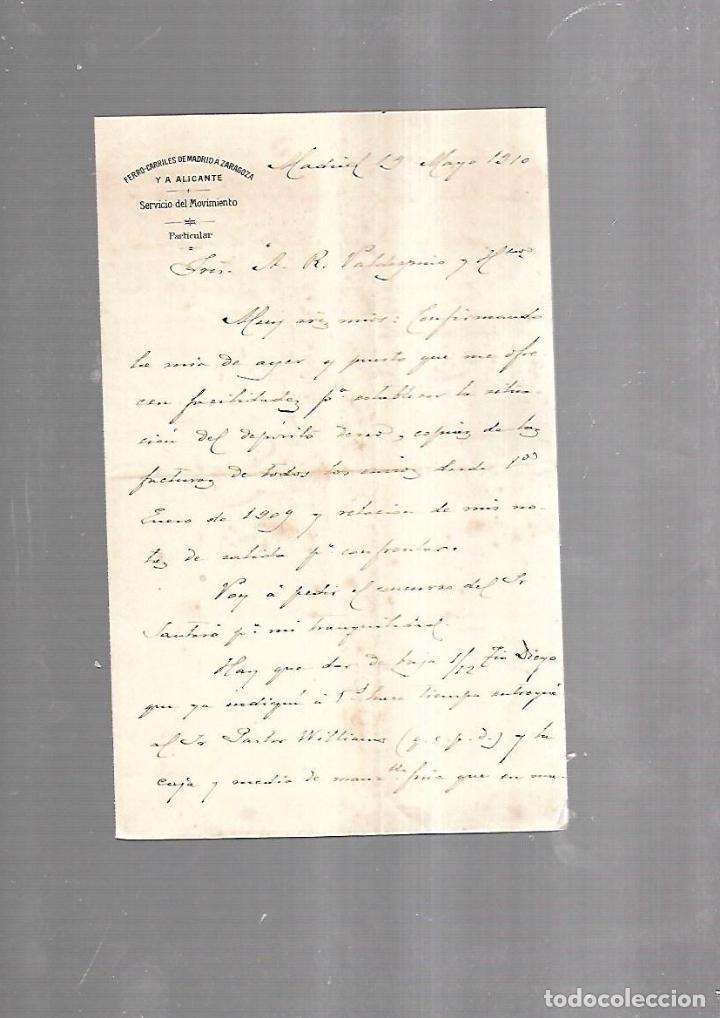 FERRO-CARRILES DE MADRID A ZARAGOZA
Y A ALICANTE
Servicio del Movimiento
Particular
Madrid 19 Mayo 1910
Sres. A. R. Valdespino y Hno
Muy sres mios: Confirmando
la mia de ayer y puesto que me ofre-
cen facilidades pa establecer la situa-
ción del depósito deseo, copias de las
facturas de todos los envios desde 1º
Enero de 1909 y relacion de mis no-
tas de salida pa confrontar.
Voy á pedir el concurso del Sr
Santero pa mi tranquilidad.
Hay que dar de baja 1/12 Tio Diego
que ya indiqué á Vd hace tiempo entregué
al Sr Pastor Williams (q.e.p.d.) y la
caja y media de manzlla fina que en